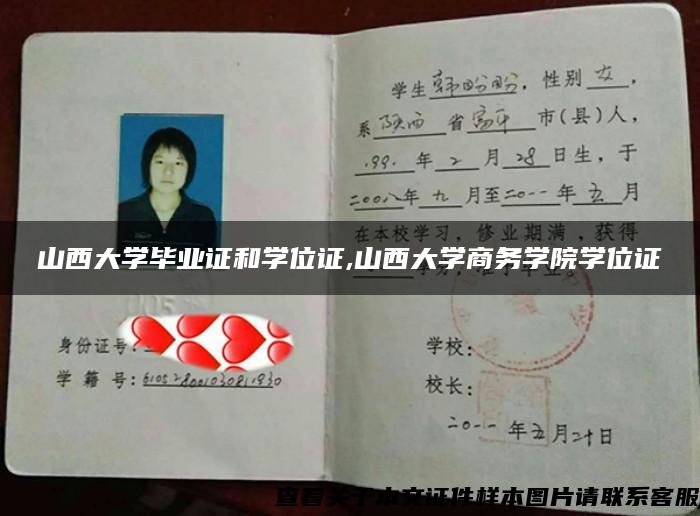 学生韩盼盼，性别女，
系陕西省富平市(县)人，
199.年2月28日生，于
二00八年九月至二0一一年五月
在本校学习，修业期满，获得
山西大学毕业证和学位证,山西大学商务学院学位证
身份证号:
学籍号:
学校:
校长:
二0一一年五月二十日
查看关于本文证件样本图片请联系客服